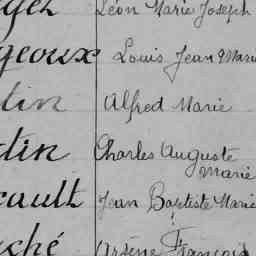 Léon Marie Joseph
geoux Louis Jean Marie
tin Alfred Marie
tin Charles Auguste
Marie
cault Jean Baptiste Marie
ché Arsène François